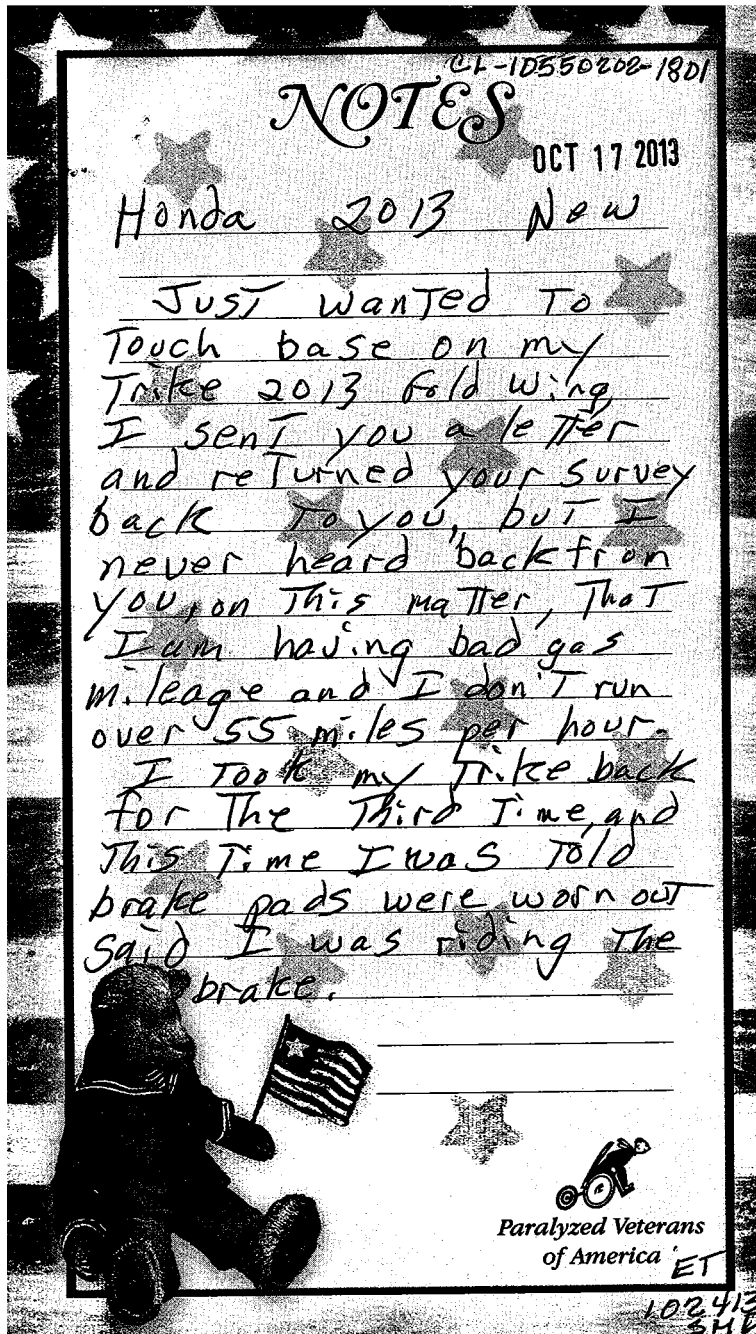 CL-10550202-1801
NOTES
OCT 17 2013
Honda 2013 New
Just wanted to
Touch base on my
Trike 2013 Gold Wing,
I sent you a letter
and returned your survey
back to you, but I
never heard back from
you, on this matter, That
I am having bad gas
mileage and I don't run
over 55 miles per hour.
I took my Trike back
for The Third Time, and
This Time I was Told
brake pads were worn out
said I was riding The
brake.
Paralyzed Veterans
of America
ET
102413